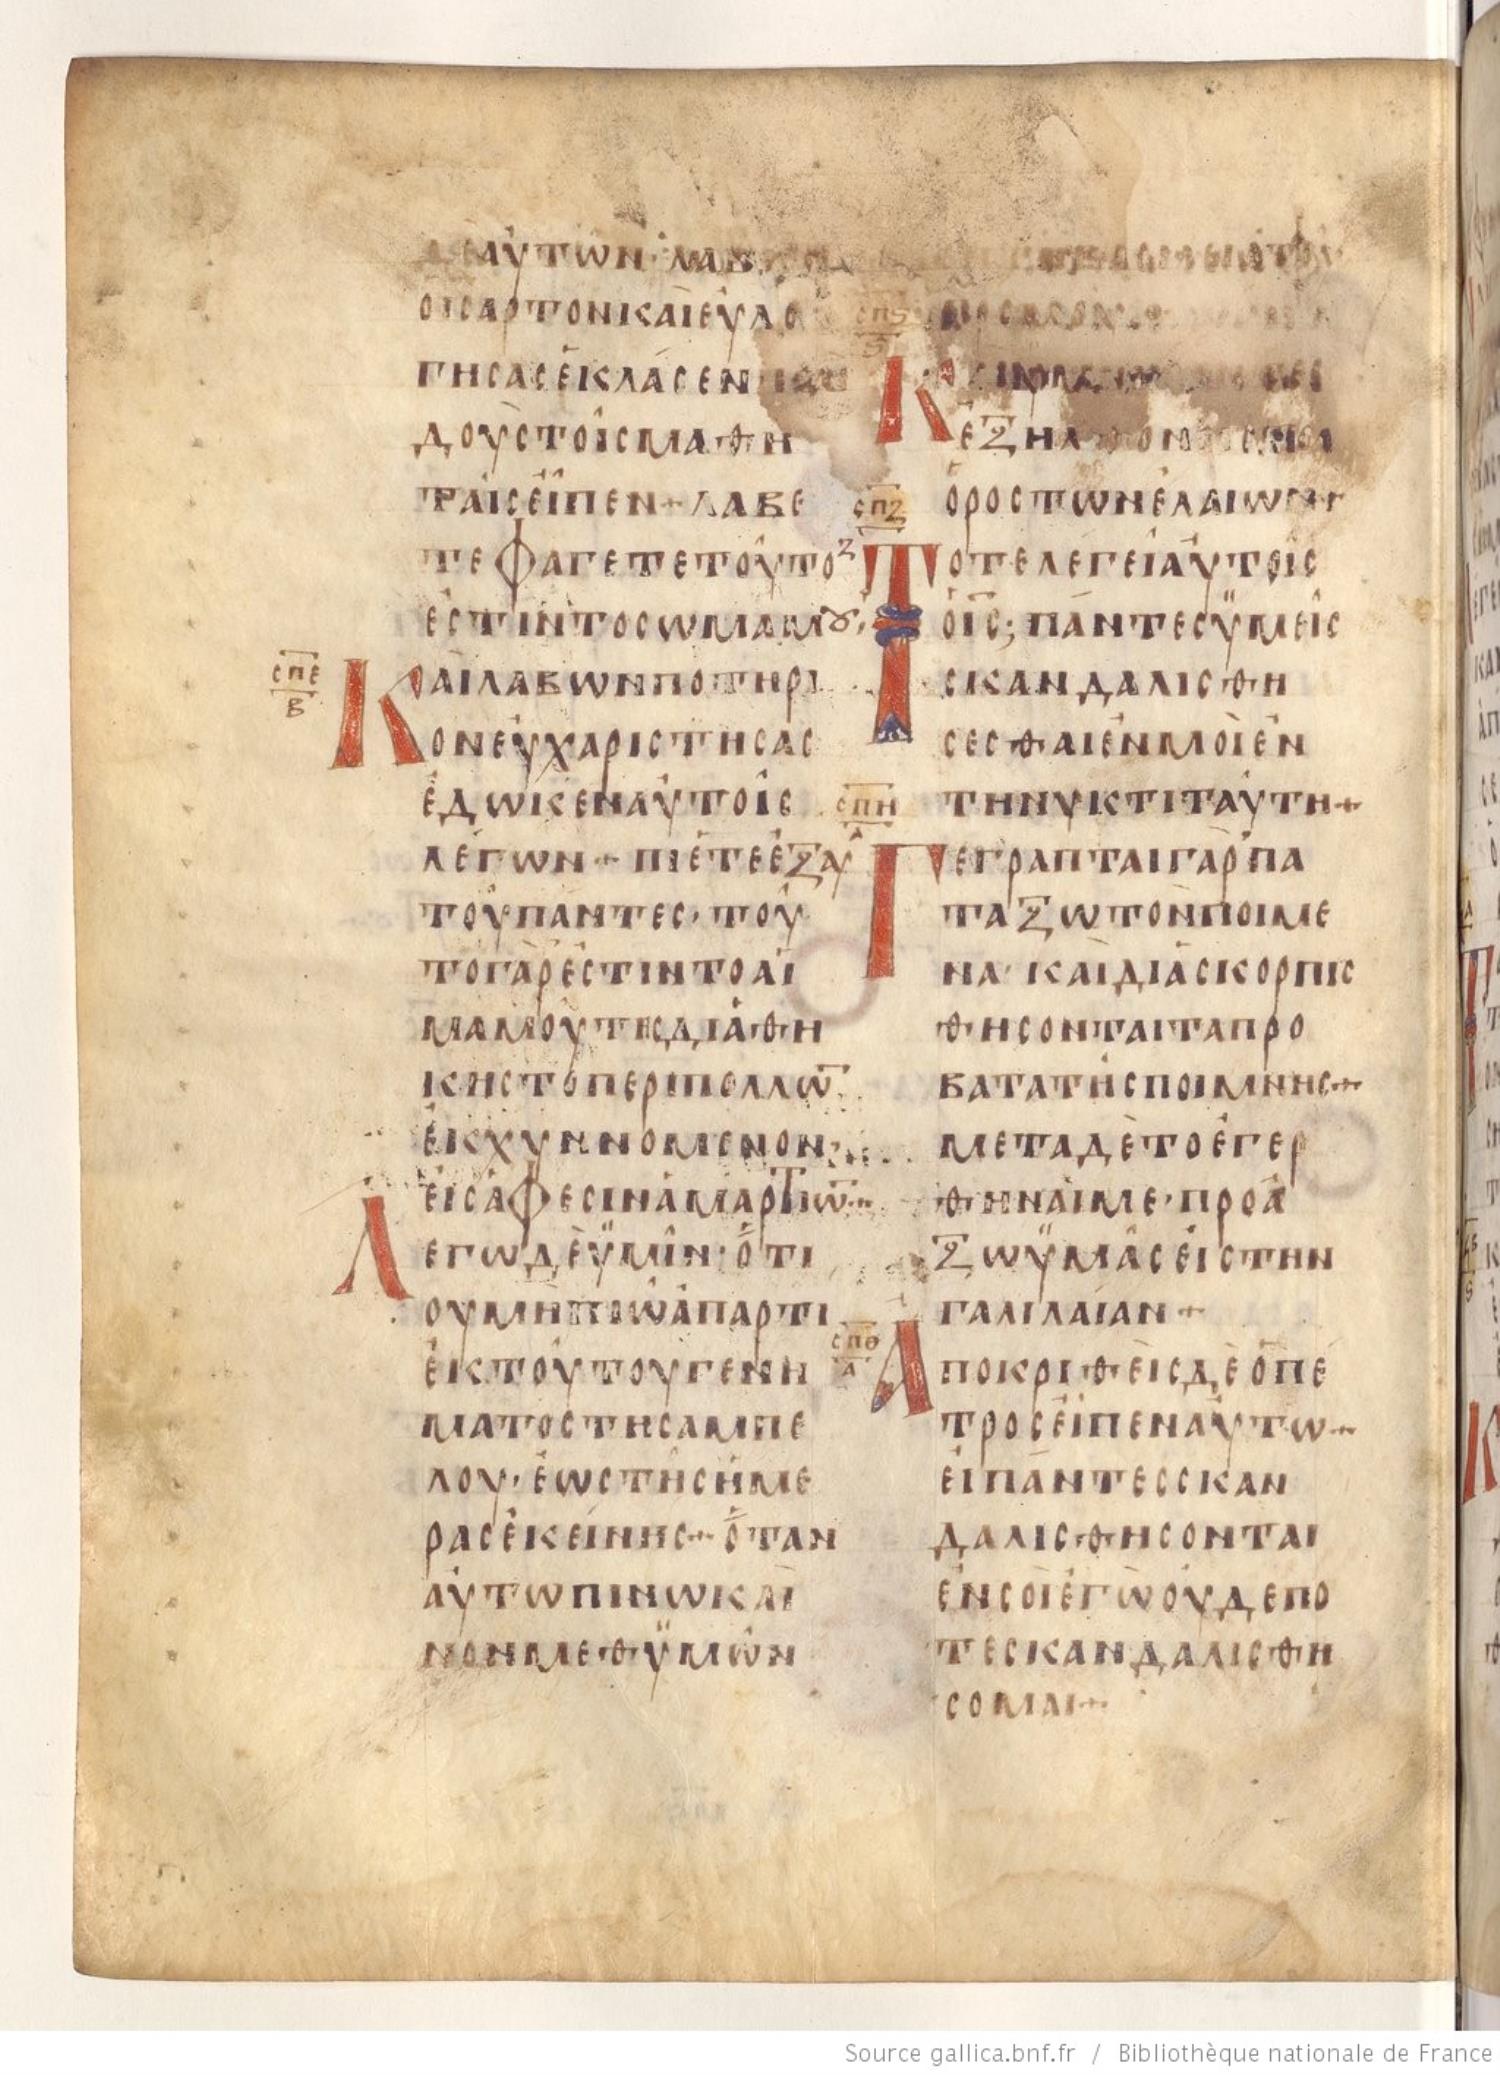 ΑΥΤΩΝ· ΛΑΒ
ΟΙCΑΡΤΟΝΚΑΙΕΥΛΟ
ΓΗCΑCΕΚΛΑCΕΝ
ΔΟΥCΤΟΙCΜΑΘΗ
ΤΑΙCΕΙΠΕΝ+ ΛΑΒΕ
ΤΕΦΑΓΕΤΕΤΟΥΤΟ
ΕCΤΙΝΤΟCΩΜΑΜȣ·
CΠΕ
Β
ΚΑΙΛΑΒΩΝΠΟΤΗΡΙ
ΟΝΕΥΧΑΡΙCΤΗCΑC
ΕΔΩΚΕΝΑΥΤΟΙC
ΛΕΓΩΝ+ ΠΙΕΤΕΕΞΑΥ
ΤΟΥΠΑΝΤΕC· ΤΟΥ
ΤΟΓΑΡΕCΤΙΝΤΟΑΙ
ΜΑΜΟΥΤΗCΔΙΑΘΗ
ΚΗCΤΟΠΕΡΙΠΟΛΛΩ̅
ΕΚΧΥΝΝΟΜΕΝΟΝ
ΕΙCΑΦΕCΙΝΑΜΑΡΤΙΩ̅+
ΛΕΓΩΔΕΫΜΙΝ· ΟΤΙ
ΟΥΜΗΠΙΩΑΠΑΡΤΙ
ΕΚΤΟΥΤΟΥΓΕΝΗ
ΜΑΤΟCΤΗCΑΜΠΕ
ΛΟΥ· ΕΩCΤΗCΗΜΕ
ΡΑCΕΚΕΙΝΗC+ ΟΤΑΝ
ΑΥΤΩΠΙΝΩΚΑΙ
ΝΟΝΜΕΘΫΜΩΝ
CΠS
S
Κ
ΕΞΗΛΘΟΝ
ΟΡΟCΤΩΝΕΛΑΙΩΝ+
CΠΖ
ΤΟΤΕΛΕΓΕΙΑΥΤΟΙC
Ο Ι̅C̅; ΠΑΝΤΕCΫΜΕΙC
CΚΑΝΔΑΛΙCΘΗ
CΕCΘΑΙΕΝΜΟΙΕΝ
ΤΗΝΥΚΤΙΤΑΥΤΗ+
CΠΗ
ΓΕΓΡΑΠΤΑΙΓΑΡΠΑ
ΤΑΞΩΤΟΝΠΟΙΜΕ
ΝΑ· ΚΑΙΔΙΑCΚΟΡΠΙC
ΘΗCΟΝΤΑΙΤΑΠΡΟ
ΒΑΤΑΤΗCΠΟΙΜΝΗC+
ΜΕΤΑΔΕΤΟΕΓΕΡ
ΘΗΝΑΙΜΕ· ΠΡΟΑ
ΞΩΫΜΑCΕΙCΤΗΝ
ΓΑΛΙΛΑΙΑΝ+
CΠΘ
Α
ΑΠΟΚΡΙΘΕΙCΔΕΟΠΕ
ΤΡΟCΕΙΠΕΝΑΥΤΩ+
ΕΙΠΑΝΤΕCCΚΑΝ
ΔΑΛΙCΘΗCΟΝΤΑΙ
ΕΝCΟΙΕΓΩΟΥΔΕΠΟ
ΤΕCΚΑΝΔΑΛΙCΘΗ
CΟΜΑΙ+
Source gallica.bnf.fr / Bibliothèque nationale de France